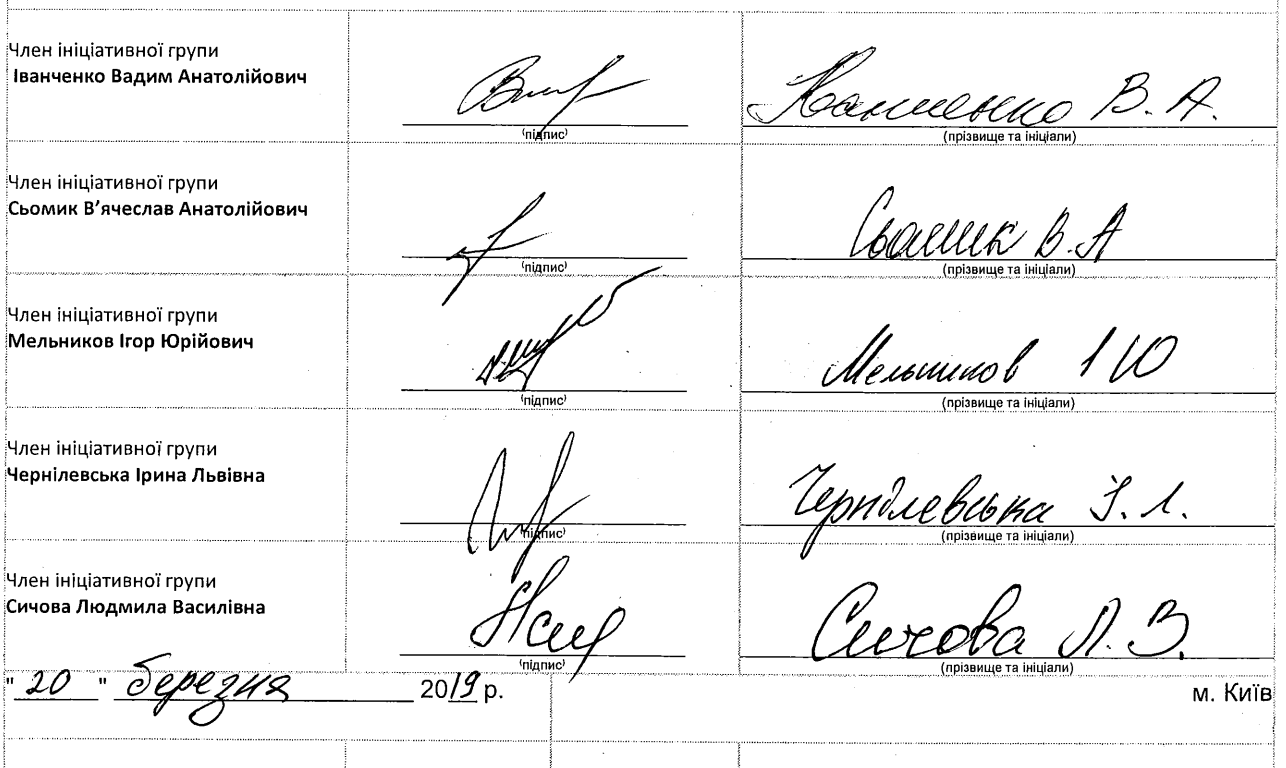 Член ініціативної групи
Іванченко Вадим Анатолійович
Іванченко В. А.
(підпис)
(прізвище та ініціали)
Член ініціативної групи
Сьомик В’ячеслав Анатолійович
Сьомик В. А
(підпис)
(прізвище та ініціали)
Член ініціативної групи
Мельников Ігор Юрійович
Мельников І Ю
(підпис)
(прізвище та ініціали)
Член ініціативної групи
Чернілевська Ірина Львівна
Чернілевська І. Л.
(підпис)
(прізвище та ініціали)
Член ініціативної групи
Сичова Людмила Василівна
Сичова Л. В.
(підпис)
(прізвище та ініціали)
" 20 " березня 2019 р. м. Київ